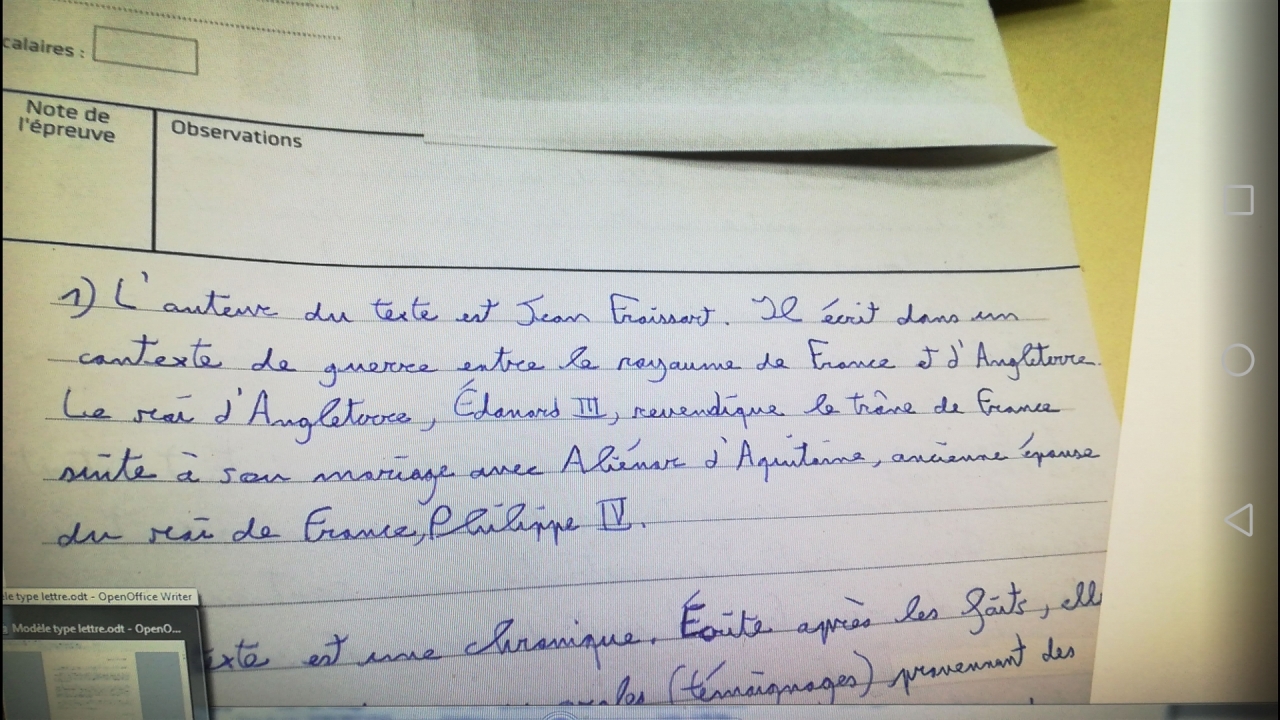 calaires :
Note de
l'épreuve
Observations
1) L'auteur du texte est Jean Froissart. Il écrit dans un
contexte de guerre entre le royaume de France et d'Angleterre.
Le roi d'Angleterre, Édouard III, revendique le trône de France
suite à son mariage avec Aliénor d'Aquitaine, ancienne épouse
du roi de France, Philippe IV.
exte est une chronique. Écrite après les faits, ell
(témoignages) provennant des
èle type lettre.odt - OpenOffice Writer
Modèle type lettre.odt - OpenO...